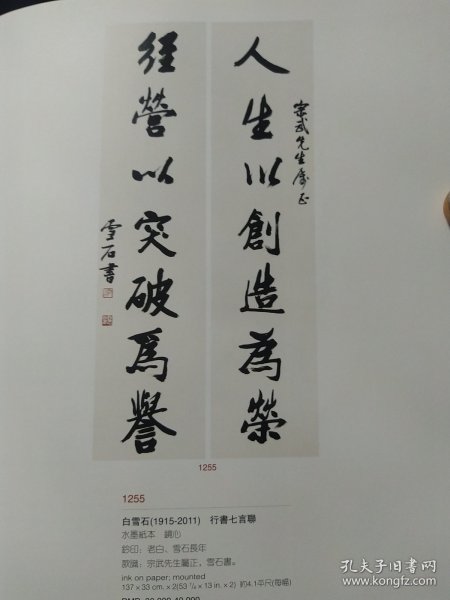 宗武先生屬正
人生以創造為榮
經營以突破爲譽
雪石書
1255
1255
白雪石(1915-2011) 行書七言聯
水墨紙本 鏡心
鈐印：老白、雪石長年
款識：宗武先生屬正，雪石書。
ink on paper; mounted
137 x 33 cm. x 2(53 7/8 x 13 in. x 2) 約4.1平尺(每幅)
孔夫子旧书网